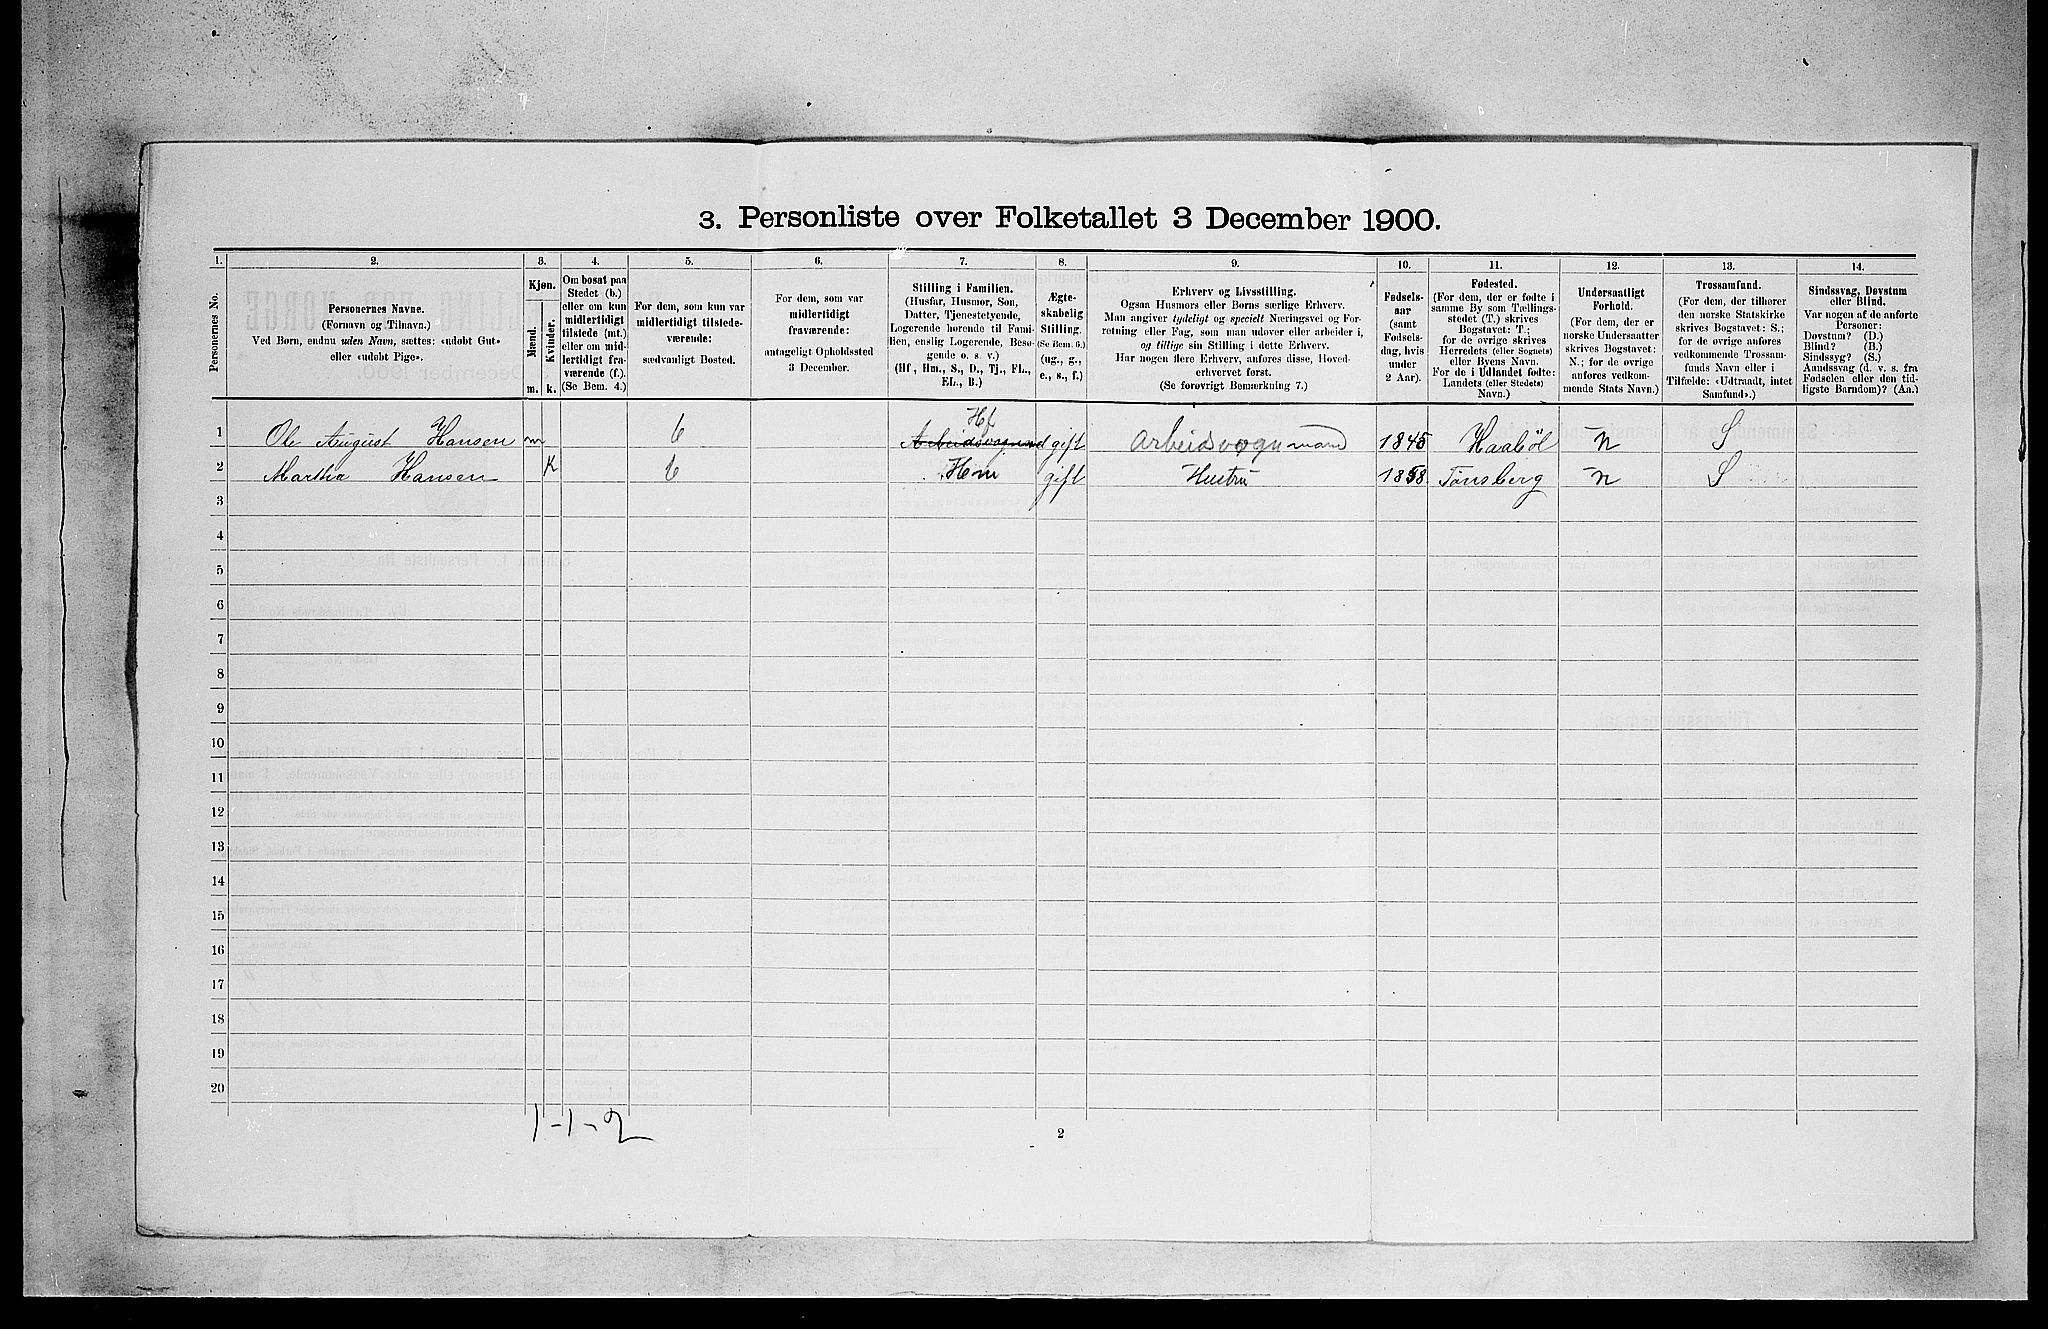 3. Personliste over Folketallet 3 December 1900.
1.
2.
3.
4.
5.
6.
7.
8.
9.
10.
11.
12.
13.
14.
Personernes No.
Personernes Navne.
(Fornavn og Tilnavn.)
Ved Børn, endnu uden Navn, sættes: «udøbt Gut»
eller «udøbt Pige».
Kjøn.
Mænd.
Kvinder.
m.
k.
Om bosat paa
Stedet (b.)
eller om kun
midlertidigt
tilstede (mt.)
eller om mid-
lertidigt fra-
værende (f.).
(Se Bem. 4.)
For dem, som kun var
midlertidigt tilstede-
værende:
sædvanligt Bosted.
For dem, som var
midlertidigt
fraværende:
antageligt Opholdssted
3 December.
Stilling i Familien.
(Husfar, Husmor, Søn,
Datter, Tjenestetyende,
Logerende hørende til Fami-
lien, enslig Logerende, Besø-
gende o. s. v.)
(Hf., Hm., S., D., Tj., FL.,
EL., B.)
Ægte-
skabelig
Stilling.
(Se Bem. 6.)
(ug., g.,
e., s., f.)
Erhverv og Livsstilling.
Ogsaa Husmors eller Børns særlige Erhverv.
Man angiver tydeligt og specielt Næringsvei og For-
retning eller Fag, som man udover eller arbeider i,
og tillige sin Stilling i dette Erhverv.
Har nogen flere Erhverv, anføres disse, Hoved-
erhvervet først.
(Se forøvrigt Bemærkning 7.)
Fødsels-
aar
(samt
Fødsels-
dag, hvis
under
2 Aar).
Fødested.
(For dem, der er fødte i
samme By som Tællings-
stedet (T.) skrives
Bogstavet: T.;
for de øvrige skrives
Herredets (eller Sognets)
eller Byens Navn.
For de i Udlandet fødte:
Landets (eller Stedets)
Navn.)
Undersaatligt
Forhold.
(For dem, der er
norske Undersaatter
skrives Bogstavet:
N.; for de øvrige
anføres vedkom-
mende Stats Navn.)
Trossamfund.
(For dem, der tilhører
den norske Statskirke
skrives Bogstavet: S.;
for de øvrige anføres
vedkommende Trossam-
funds Navn eller i
Tilfælde: «Udtraadt, intet
Samfund».)
Sindssvag, Døvstum
eller Blind.
Var nogen af de anførte
Personer:
Døvstum? (D.)
Blind? (B.)
Sindssyg? (S.)
Aandssvag (d. v. s. fra
Fødselen eller den tid-
ligste Barndom)? (Aa.)
1 Ole August Hansen m 6 Arbeidsvognmd Hf gift Arbeidsvognmand 1845 Haabøl N S
2 Martha Hansen K 6 Hm gift Hustru 1858 Tønsberg N S
3
4
5
6
7
8
9
10
11
12
13
14
15
16
17
18
19
20
1-1-2
2